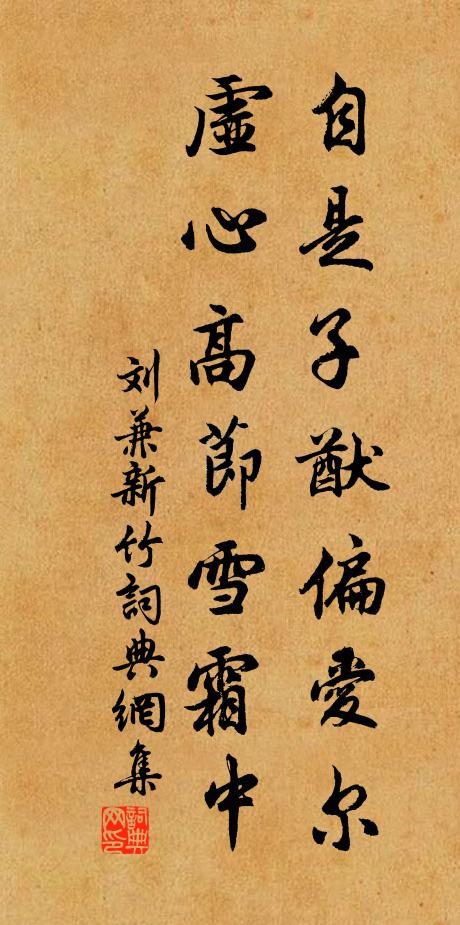 自是子猷偏愛尔
虛心高節雪霜中
刘兼新竹詞典網集
詞典网印